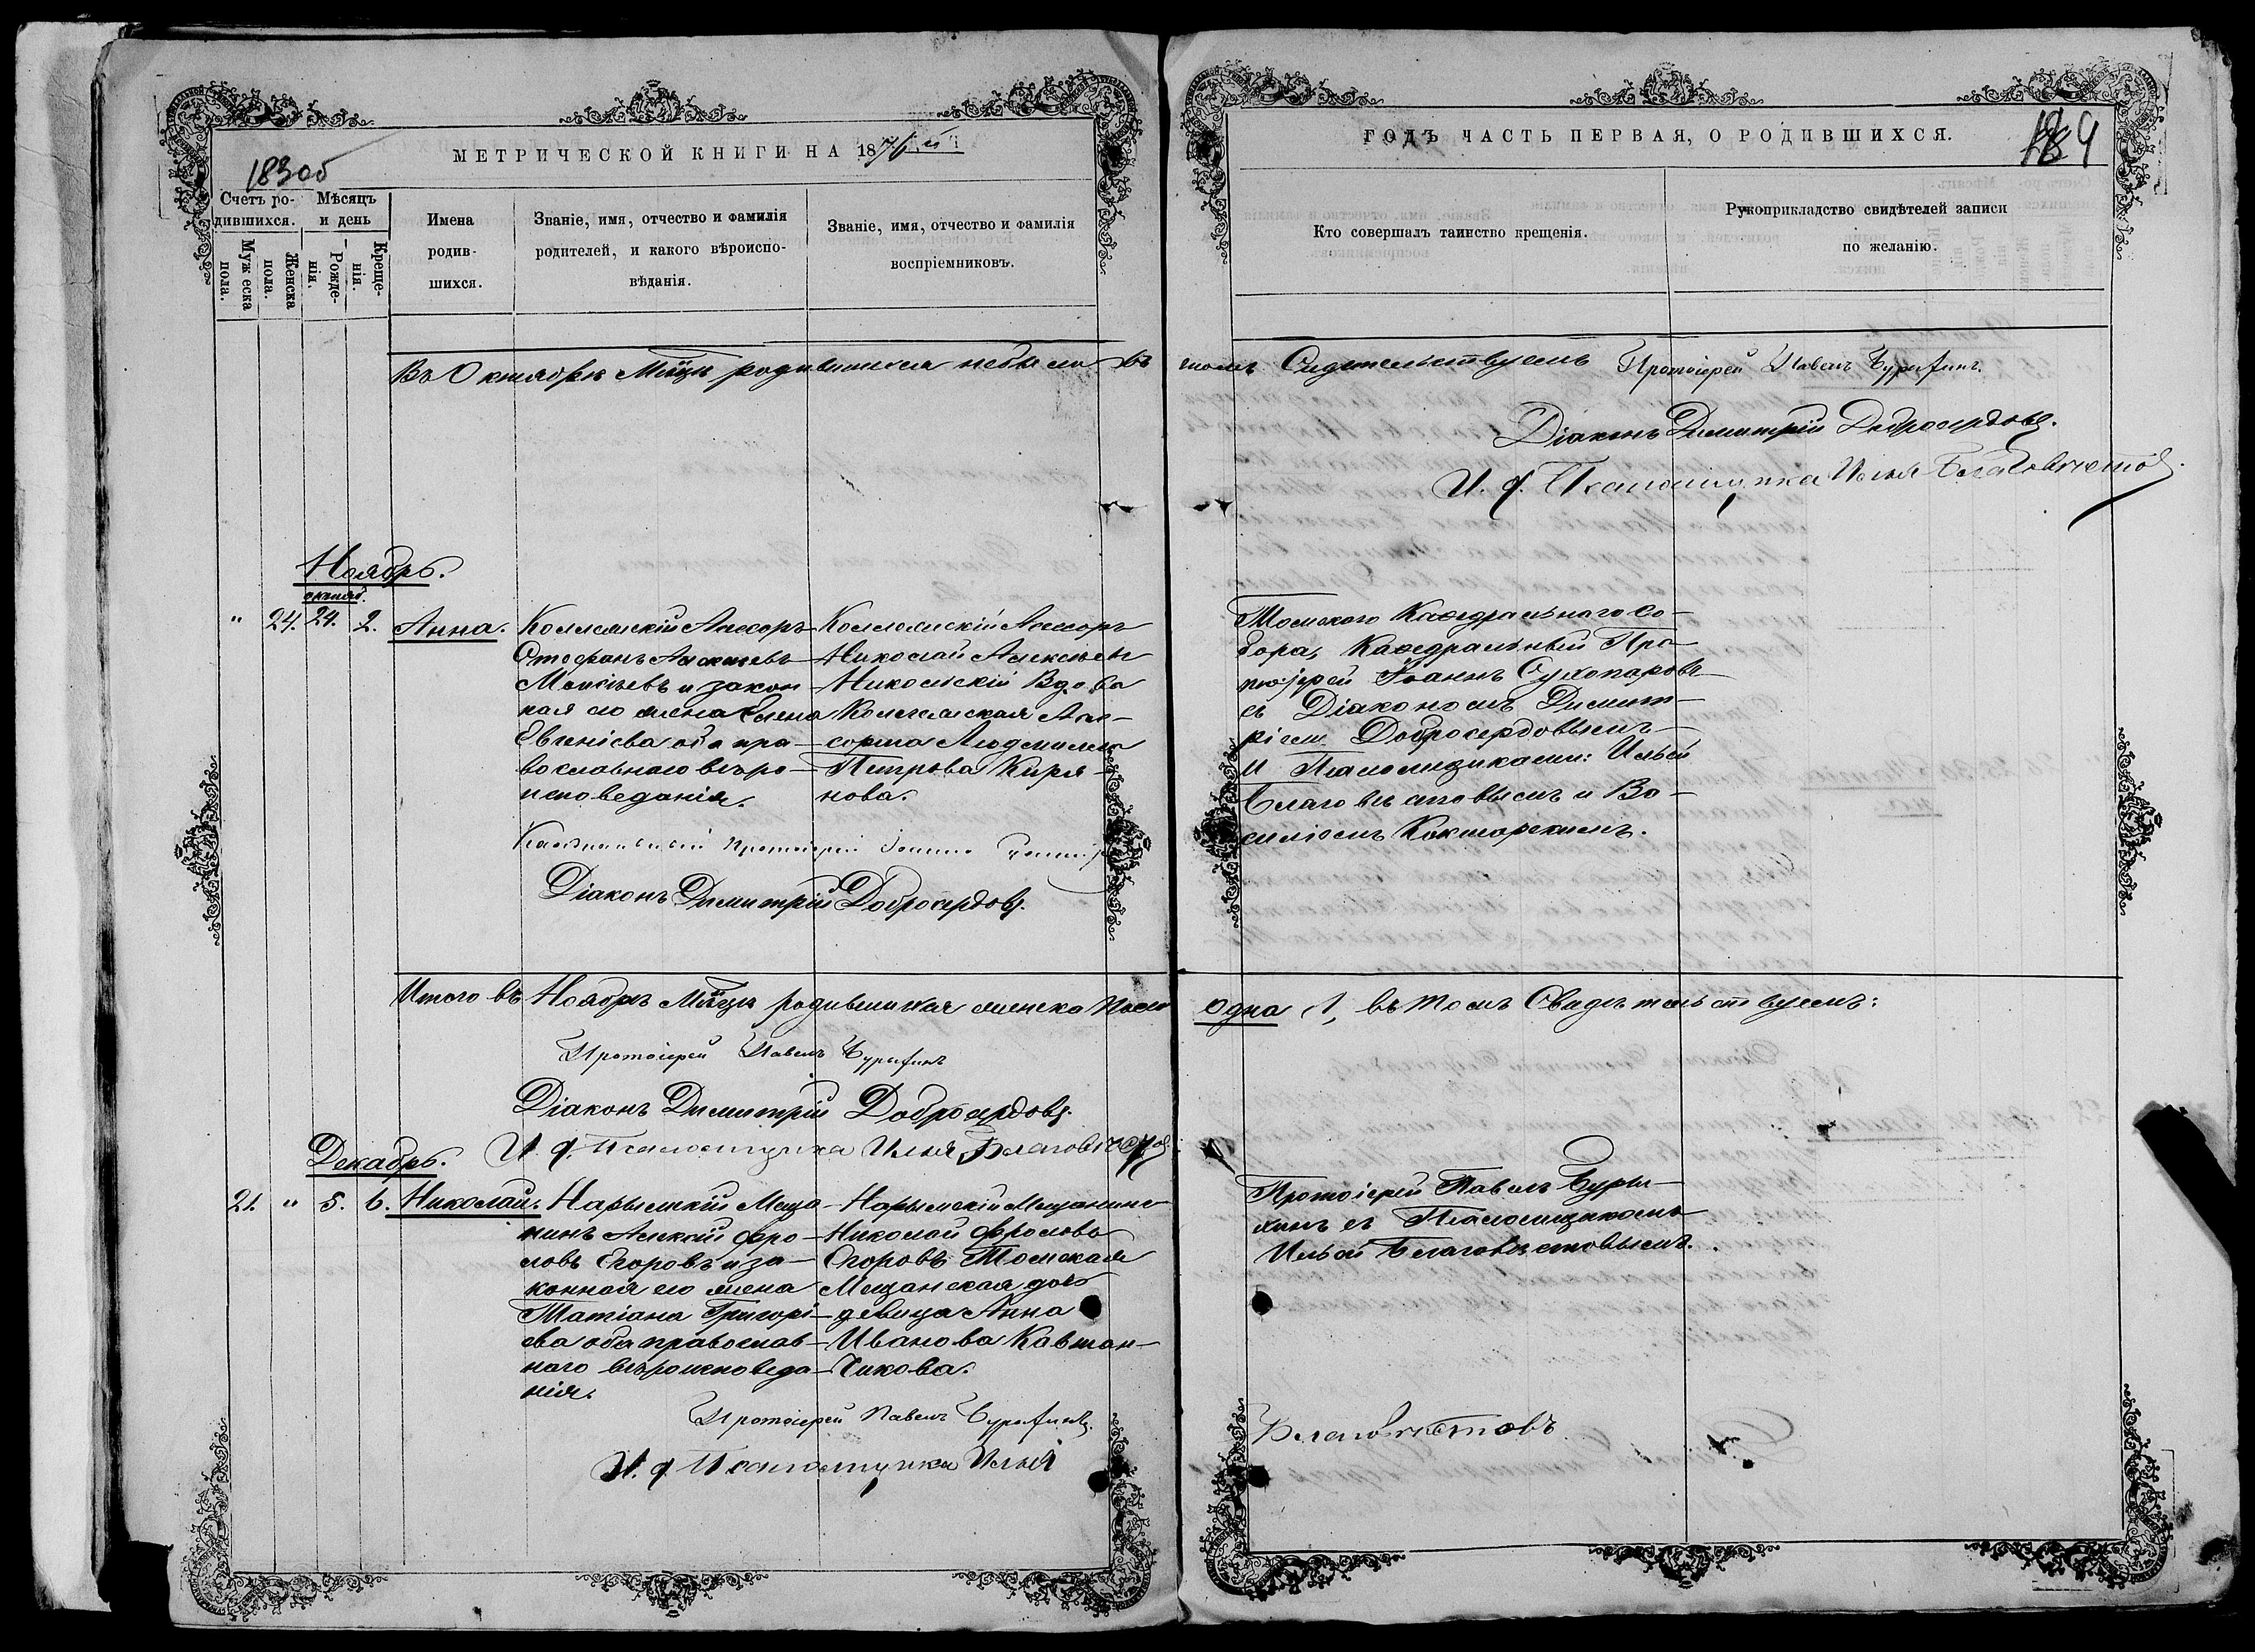 МЕТРИЧЕСКОЙ КНИГИ НА 1876й
183об
Счетъ родившихся.
Мужеска пола.
Женска пола.
Мѣсяцъ и день
Рожденія.
Крещенія.
Имена родившихся.
Званіе, имя, отчество и фамилія
родителей, и какого вѣроиспо-
вѣданія.
Званіе, имя, отчество и фамилія
воспріемниковъ.
ГОДЪ ЧАСТЬ ПЕРВАЯ, О РОДИВШИХСЯ.
Кто совершалъ таинство крещенія.
Рукоприкладство свидѣтелей записи
по желанію.
Въ Октябрѣ Мѣсяцѣ родившихся небыло въ томъ Сидетельствуемъ Протоіерей Павелъ
Діаконъ Димитрій Добросердовъ.
И. д. Псаломщика Илья Благовѣстовъ.
Ноябрь.
октяб.
" 24. 24. 2. Анна.
Коллежскій Ассесоръ
Стефанъ Алексѣевъ
и закон-
ная его жена Елена
Евгеніева оба пра-
вославнаго вѣро-
исповеданія.
Коллежскій Ассесоръ
Николай Алексѣевъ
Никольскій Вдова
Коллежская Асе-
сорша Людмилла
Петрова Кирья-
нова.
Томскаго Кафедральнаго Со-
бора, Кафедральный Про-
тоіерей Іоаннъ Сухопаровъ
съ Діакономъ Димит-
ріемъ Добросердовымъ
и Псаломщиками: Ильей
Благовѣстовымъ и Ва-
силіемъ
Кафедральный Протоіерей Іоаннъ
Діаконъ Димитрій Добросердовъ.
Итого въ Ноябрѣ Мѣсяцѣ родившихся женска пола одна 1, въ томъ Свидѣтельствуемъ:
Протоіерей Павелъ
Діаконъ Димитрій Добросердовъ.
И. д. Псаломщика Илья Благовѣстовъ.
Декабрь.
21. " 5. 6. Николай.
Нарымскій Меща-
нинъ Алексѣй Фро-
ловъ Егоровъ и за-
конная его жена
Татіана Григорі-
ева оба православ-
наго вѣроисповеда-
нія.
Нарымскій Мещанинъ
Николай Фролова
Егоровъ Томская
Мещанская дочь
девица Анна
Иванова Кавтан-
чикова.
Протоіерей Павелъ Буры-
хинъ съ Псаломщикомъ
Ильей Благовѣстовымъ.
Протоіерей Павелъ
И. д. Псаломщика Илья
Благовѣстовъ